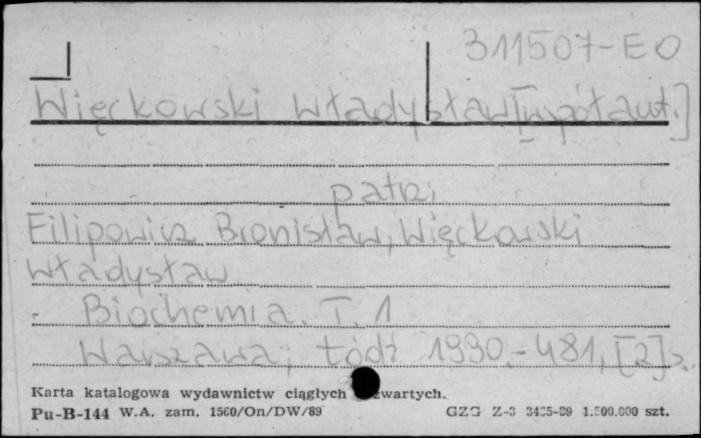 311507-EO
Więckowski Władysław [współaut.]
patrz
Filipowicz Bronisław, Więckowski
Władysław
Biochemia. T. 1
Warszawa; Łódź 1990.- 481, [2] s.
Karta katalogowa wydawnictw ciągłych zwartych.
Pu-B-144 W.A. zam. 1560/On/DW/89 GZG Z-3 1.500.000 szt.